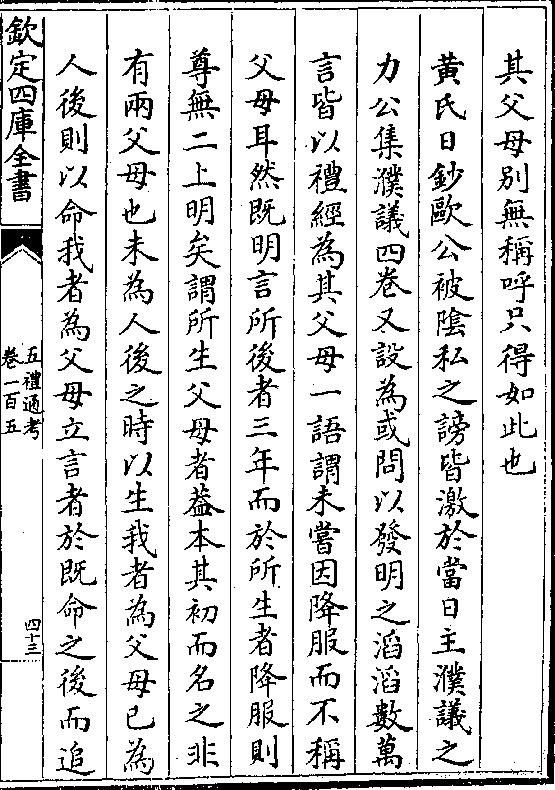 其父母別無稱呼只得如此也
黄氏日鈔歐公被陰私之謗皆激於當日主濮議之
力公集濮議四卷又設為或問以發明之滔滔數萬
言皆以禮經為其父母一語謂未嘗因降服而不稱
父母耳然既明言所後者三年而於所生者降服則
尊無二上明矣謂所生父母者葢本其初而名之非
有兩父母也未為人後之時以生我者為父母已為
人後則以命我者為父母立言者於既命之後而追
欽定四庫全書
五禮通考
卷一百五
四十三